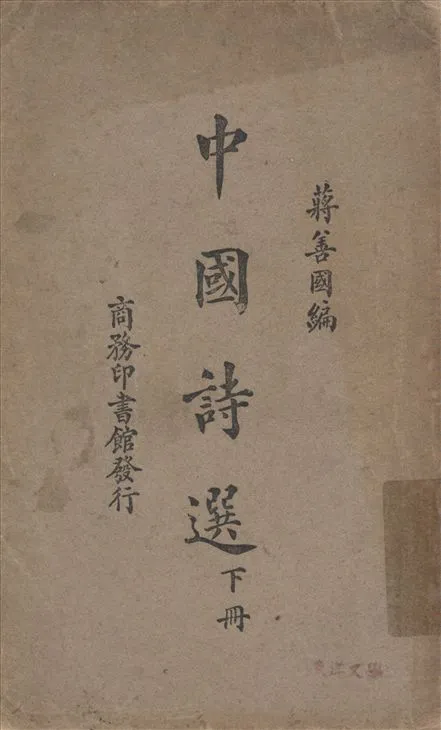 蔣善國編
中國詩選
下冊
商務印書館發行